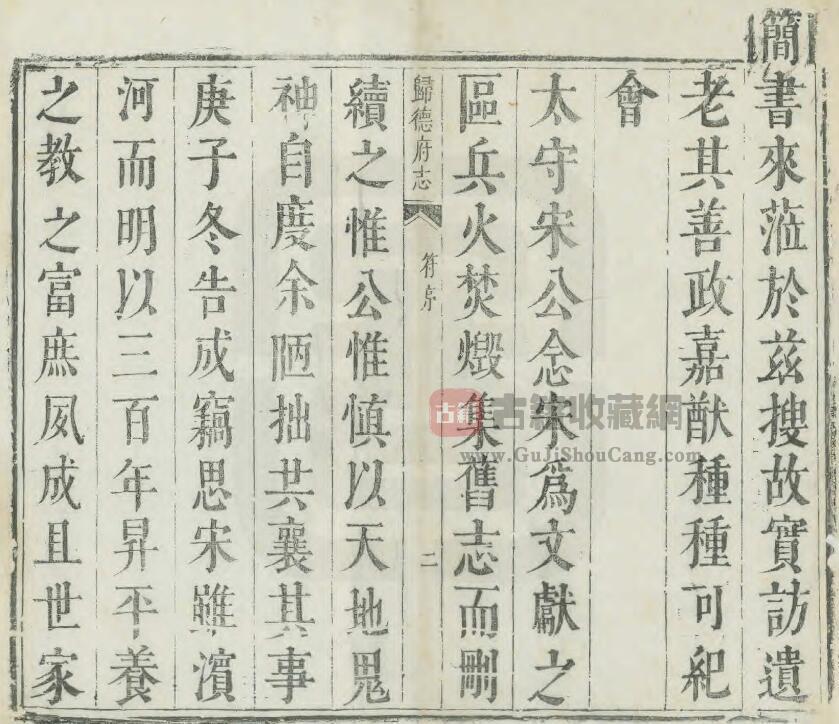 簡書來蒞於兹搜故實訪遺
老其善政嘉猷種種可紀
會
太守宋公念宋為文獻之
區兵火焚燬集舊志而刪
歸德府志
符序
二
續之惟公惟慎以天地鬼
神自度余陋拙共襄其事
庚子冬告成竊思宋雖濱
河而明以三百年昇平養
之教之富庶夙成且世家
古籍 古籍收藏網
www.GuJiShouCang.com